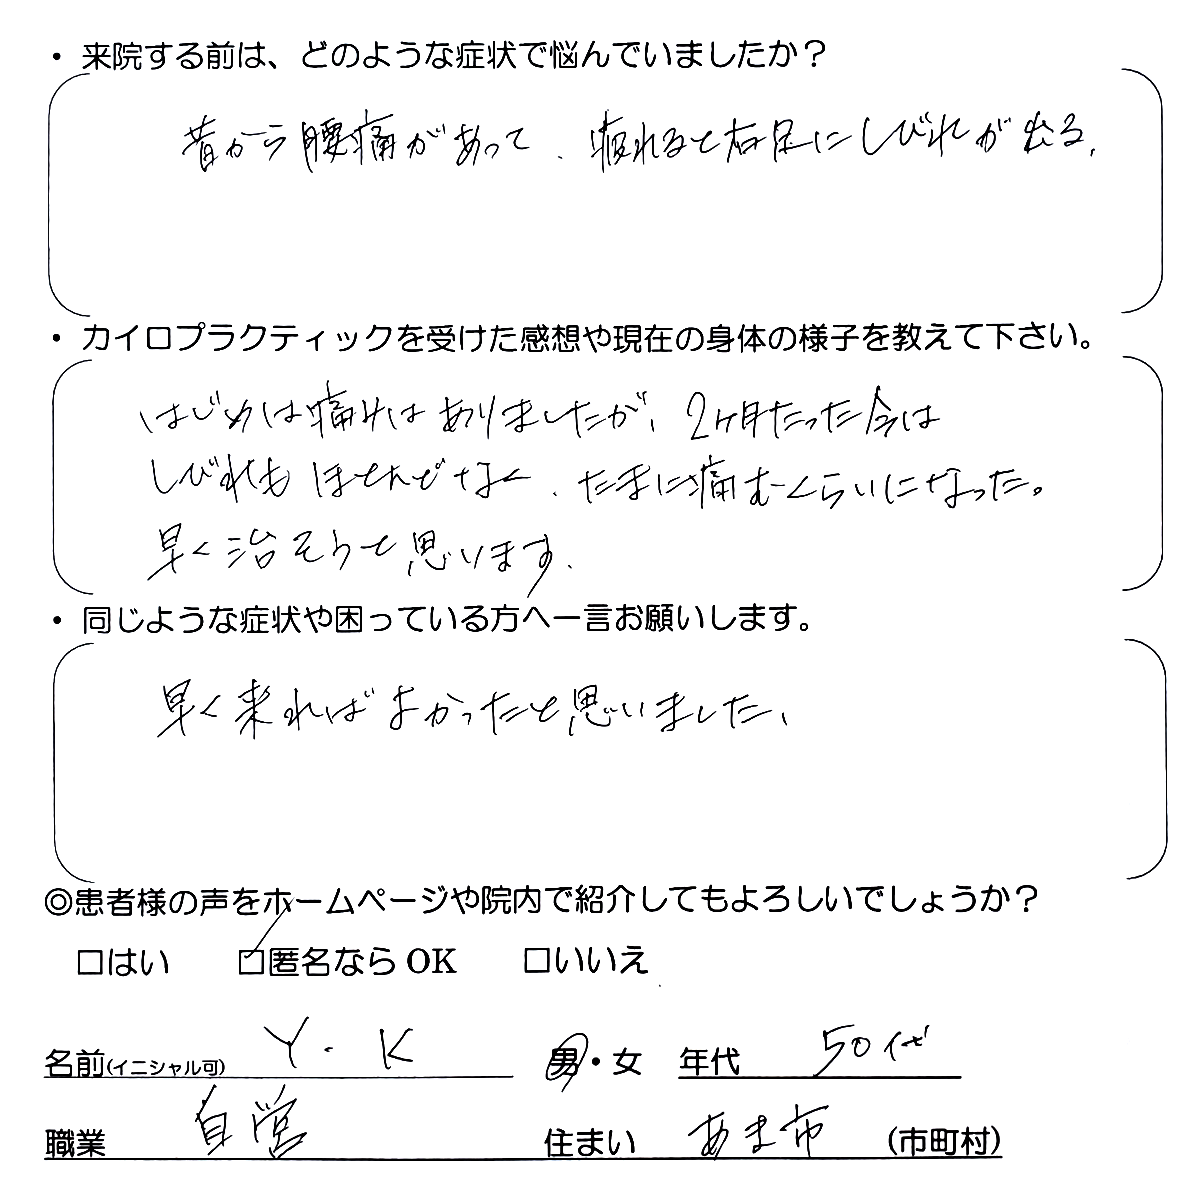 ・来院する前は、どのような症状で悩んでいましたか？
昔から腰痛があって、疲れると右足にしびれが出る、
・カイロプラクティックを受けた感想や現在の身体の様子を教えて下さい。
はじめは痛みはありましたが、2ヶ月たった今は
しびれもほとんどなく、たまに痛むくらいになった。
早く治そうと思います、
・同じような症状や困っている方へ一言お願いします。
早く来ればよかったと思いました、
◎患者様の声をホームページや院内で紹介してもよろしいでしょうか？
□はい　□匿名なら OK　□いいえ
名前(イニシャル可) Y.K 男・女 年代 50代
職業 自営 住まい あま市 (市町村)